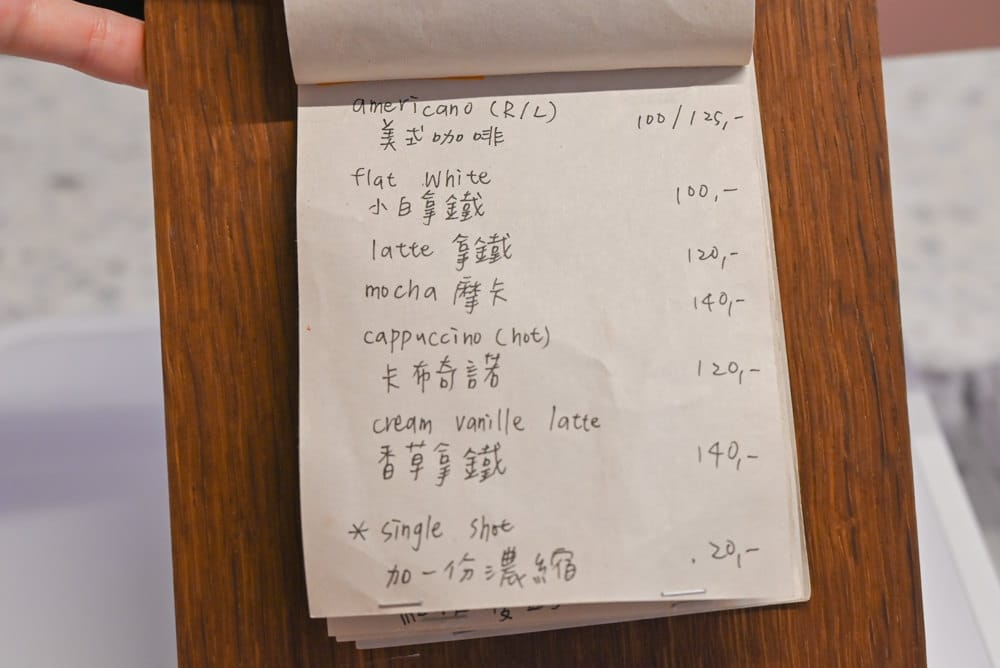 americano (R/L) 100/125,-
美式咖啡
flat white 100,-
小白拿鐵
latte 拿鐵 120,-
mocha 摩卡 140,-
cappuccino (hot)
卡布奇諾 120,-
cream vanille latte
香草拿鐵 140,-
* single shot
加一份濃縮 20,-